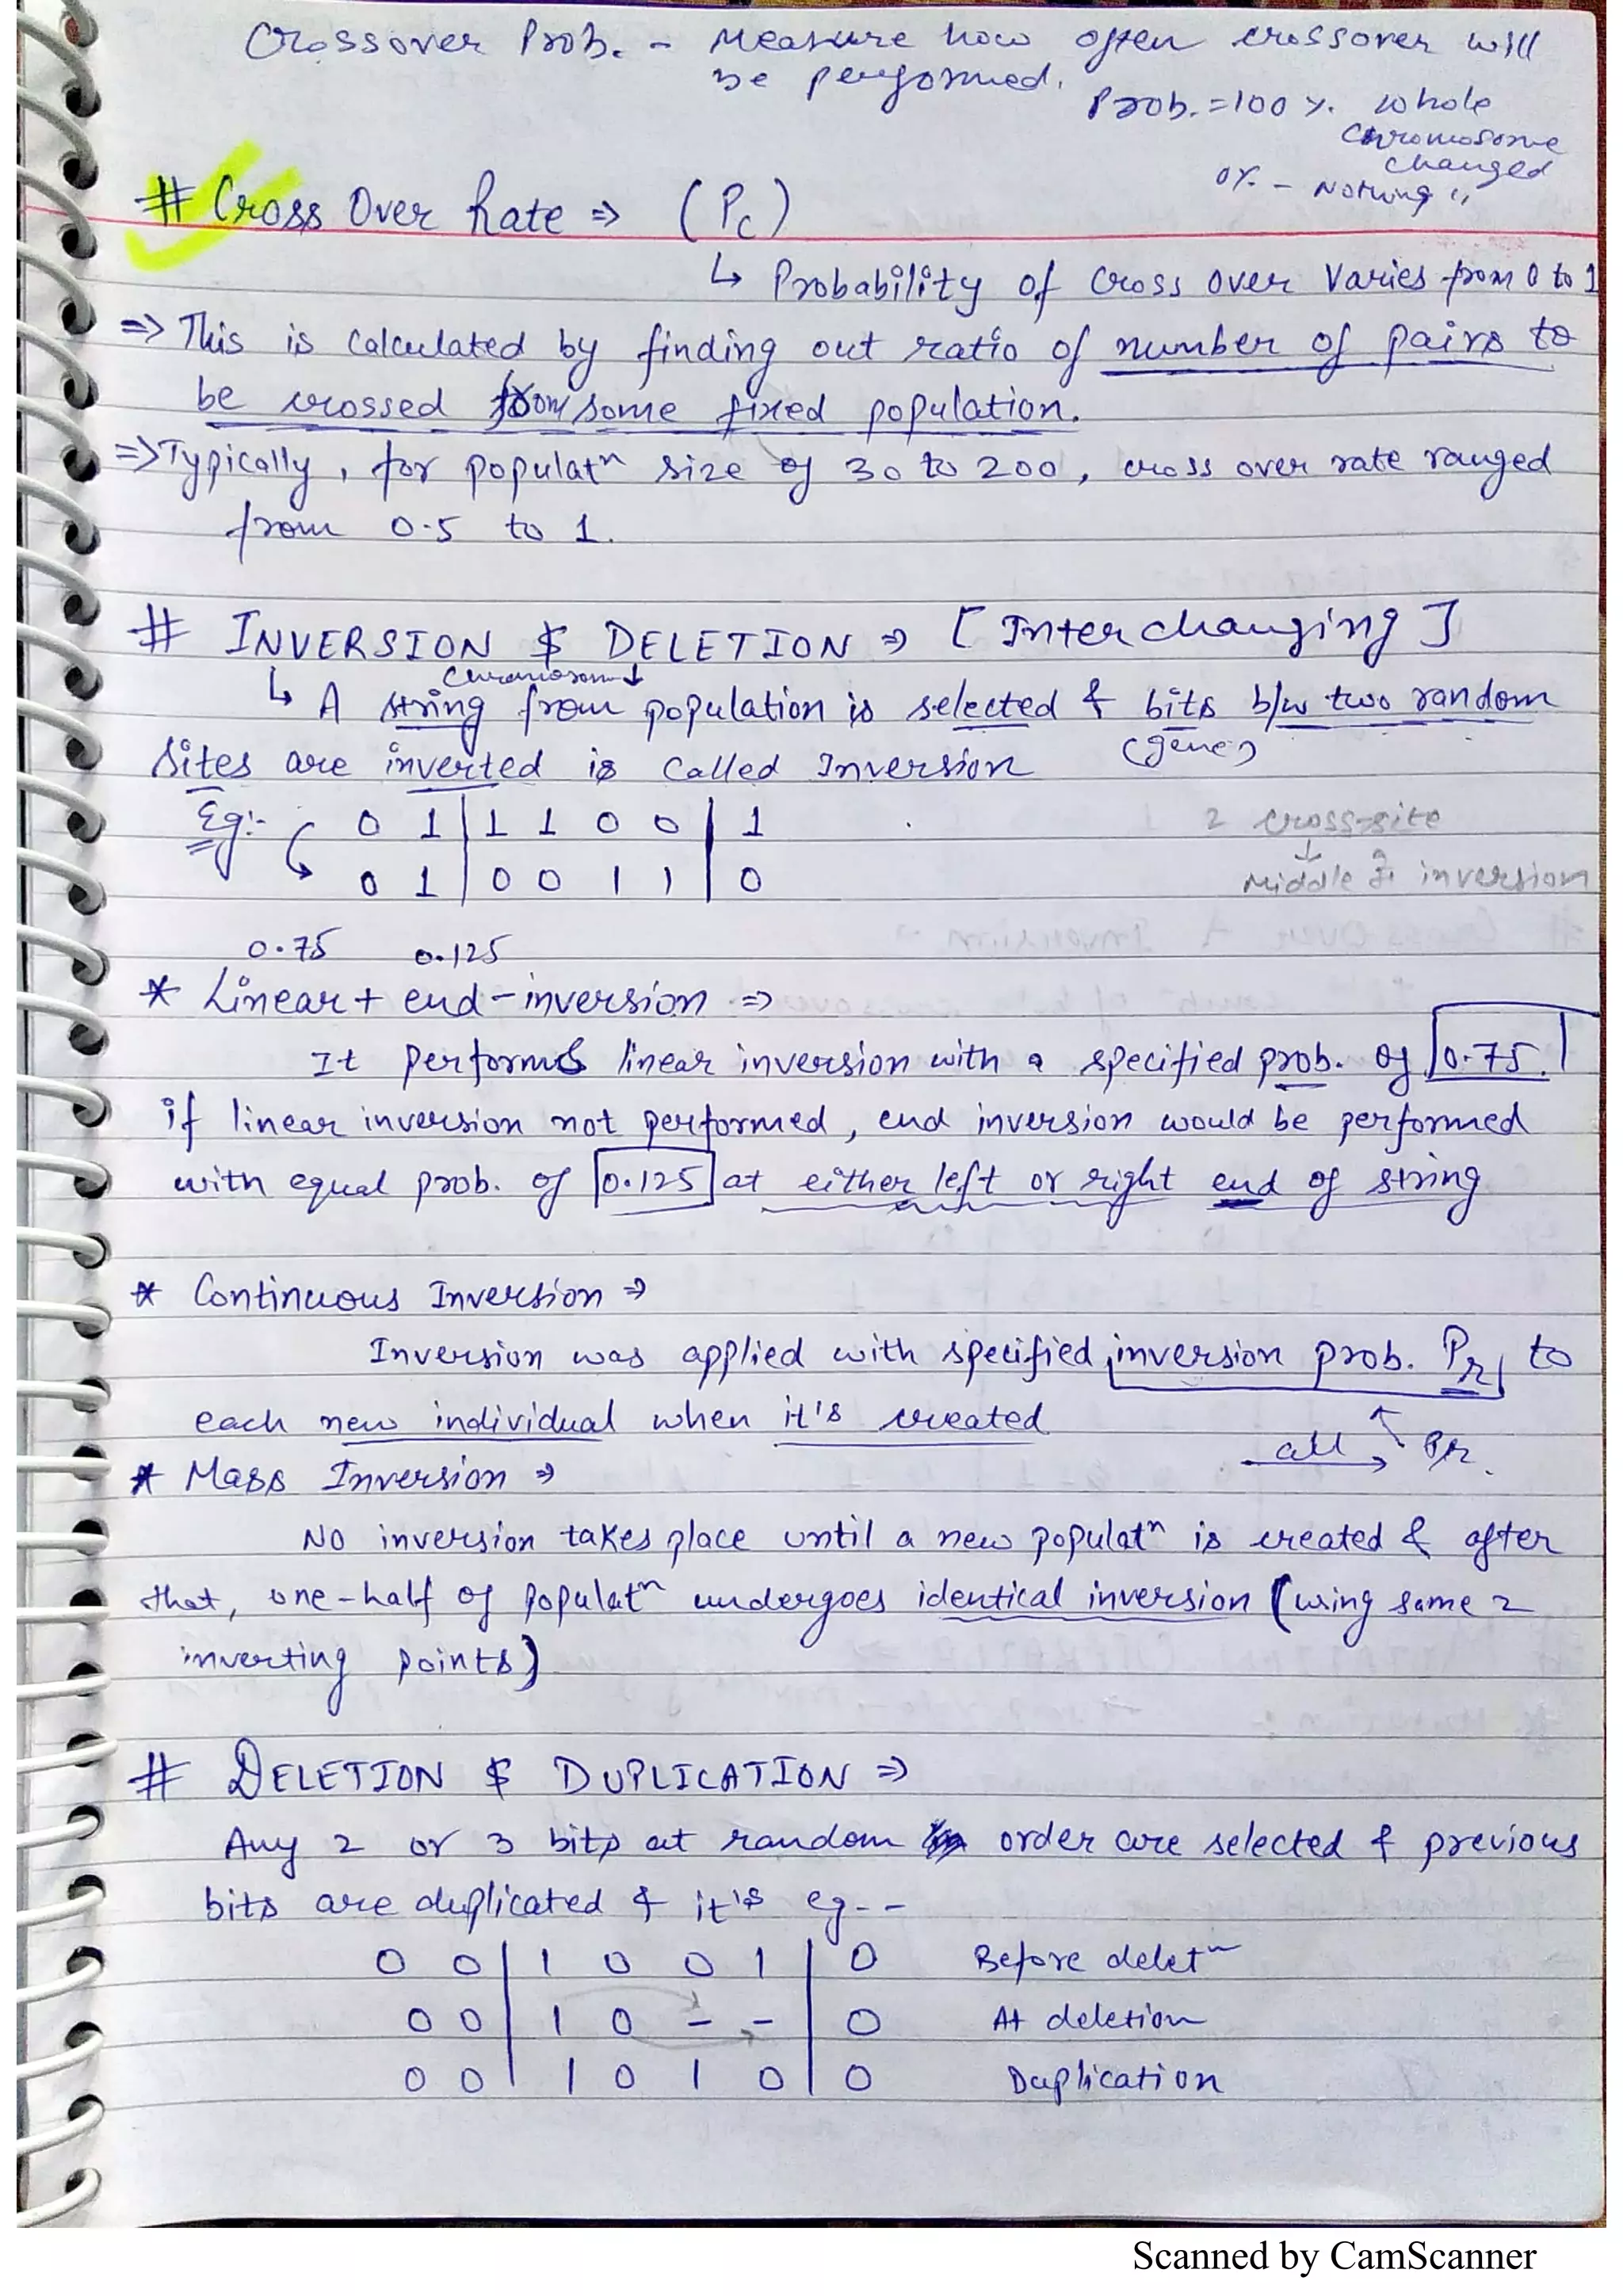 Crossover Prob. - Measure how often crossover will
be performed.
Prob. = 100 %. whole
Chromosome
changed
0%. - Nothing "
# Cross Over Rate ⇒ (Pc)
↳ Probability of cross over varies from 0 to 1
⇒ This is calculated by finding out ratio of number of pairs to
be crossed from some fixed population.
⇒ Typically, for populatⁿ size of 30 to 200, cross over rate ranged
from 0.5 to 1.
# INVERSION & DELETION ⇒ [Interchanging]
Chromosom ↓
↳ A string from population is selected & bits b/w two random
(gene)
sites are inverted is called Inversion
Eg:- 0 1 | 1 1 0 0 | 1
2 cross-site
0 1 | 0 0 1 1 | 0
↓
Middle inversion
0.75 0.125
* Linear + end-inversion ⇒
It performs linear inversion with a specified prob. of 0.75.
if linear inversion not performed, end inversion would be performed
with equal prob. of 0.125 at either left or right end of string
* Continuous Inversion ⇒
Inversion was applied with specified inversion prob. Pr to
each new individual when it's created
all → Pr.
* Mass Inversion ⇒
No inversion takes place until a new populatⁿ is created & after
that, one-half of populatⁿ undergoes identical inversion (using same 2
inverting points)
# DELETION & DUPLICATION ⇒
Any 2 or 3 bits at random order are selected & previous
bits are duplicated & it's eg--
0 0 | 1 0 0 1 | 0 Before deletⁿ
0 0 | 1 0 - - | 0 At deletion
0 0 | 1 0 1 0 | 0 Duplication
Scanned by CamScanner